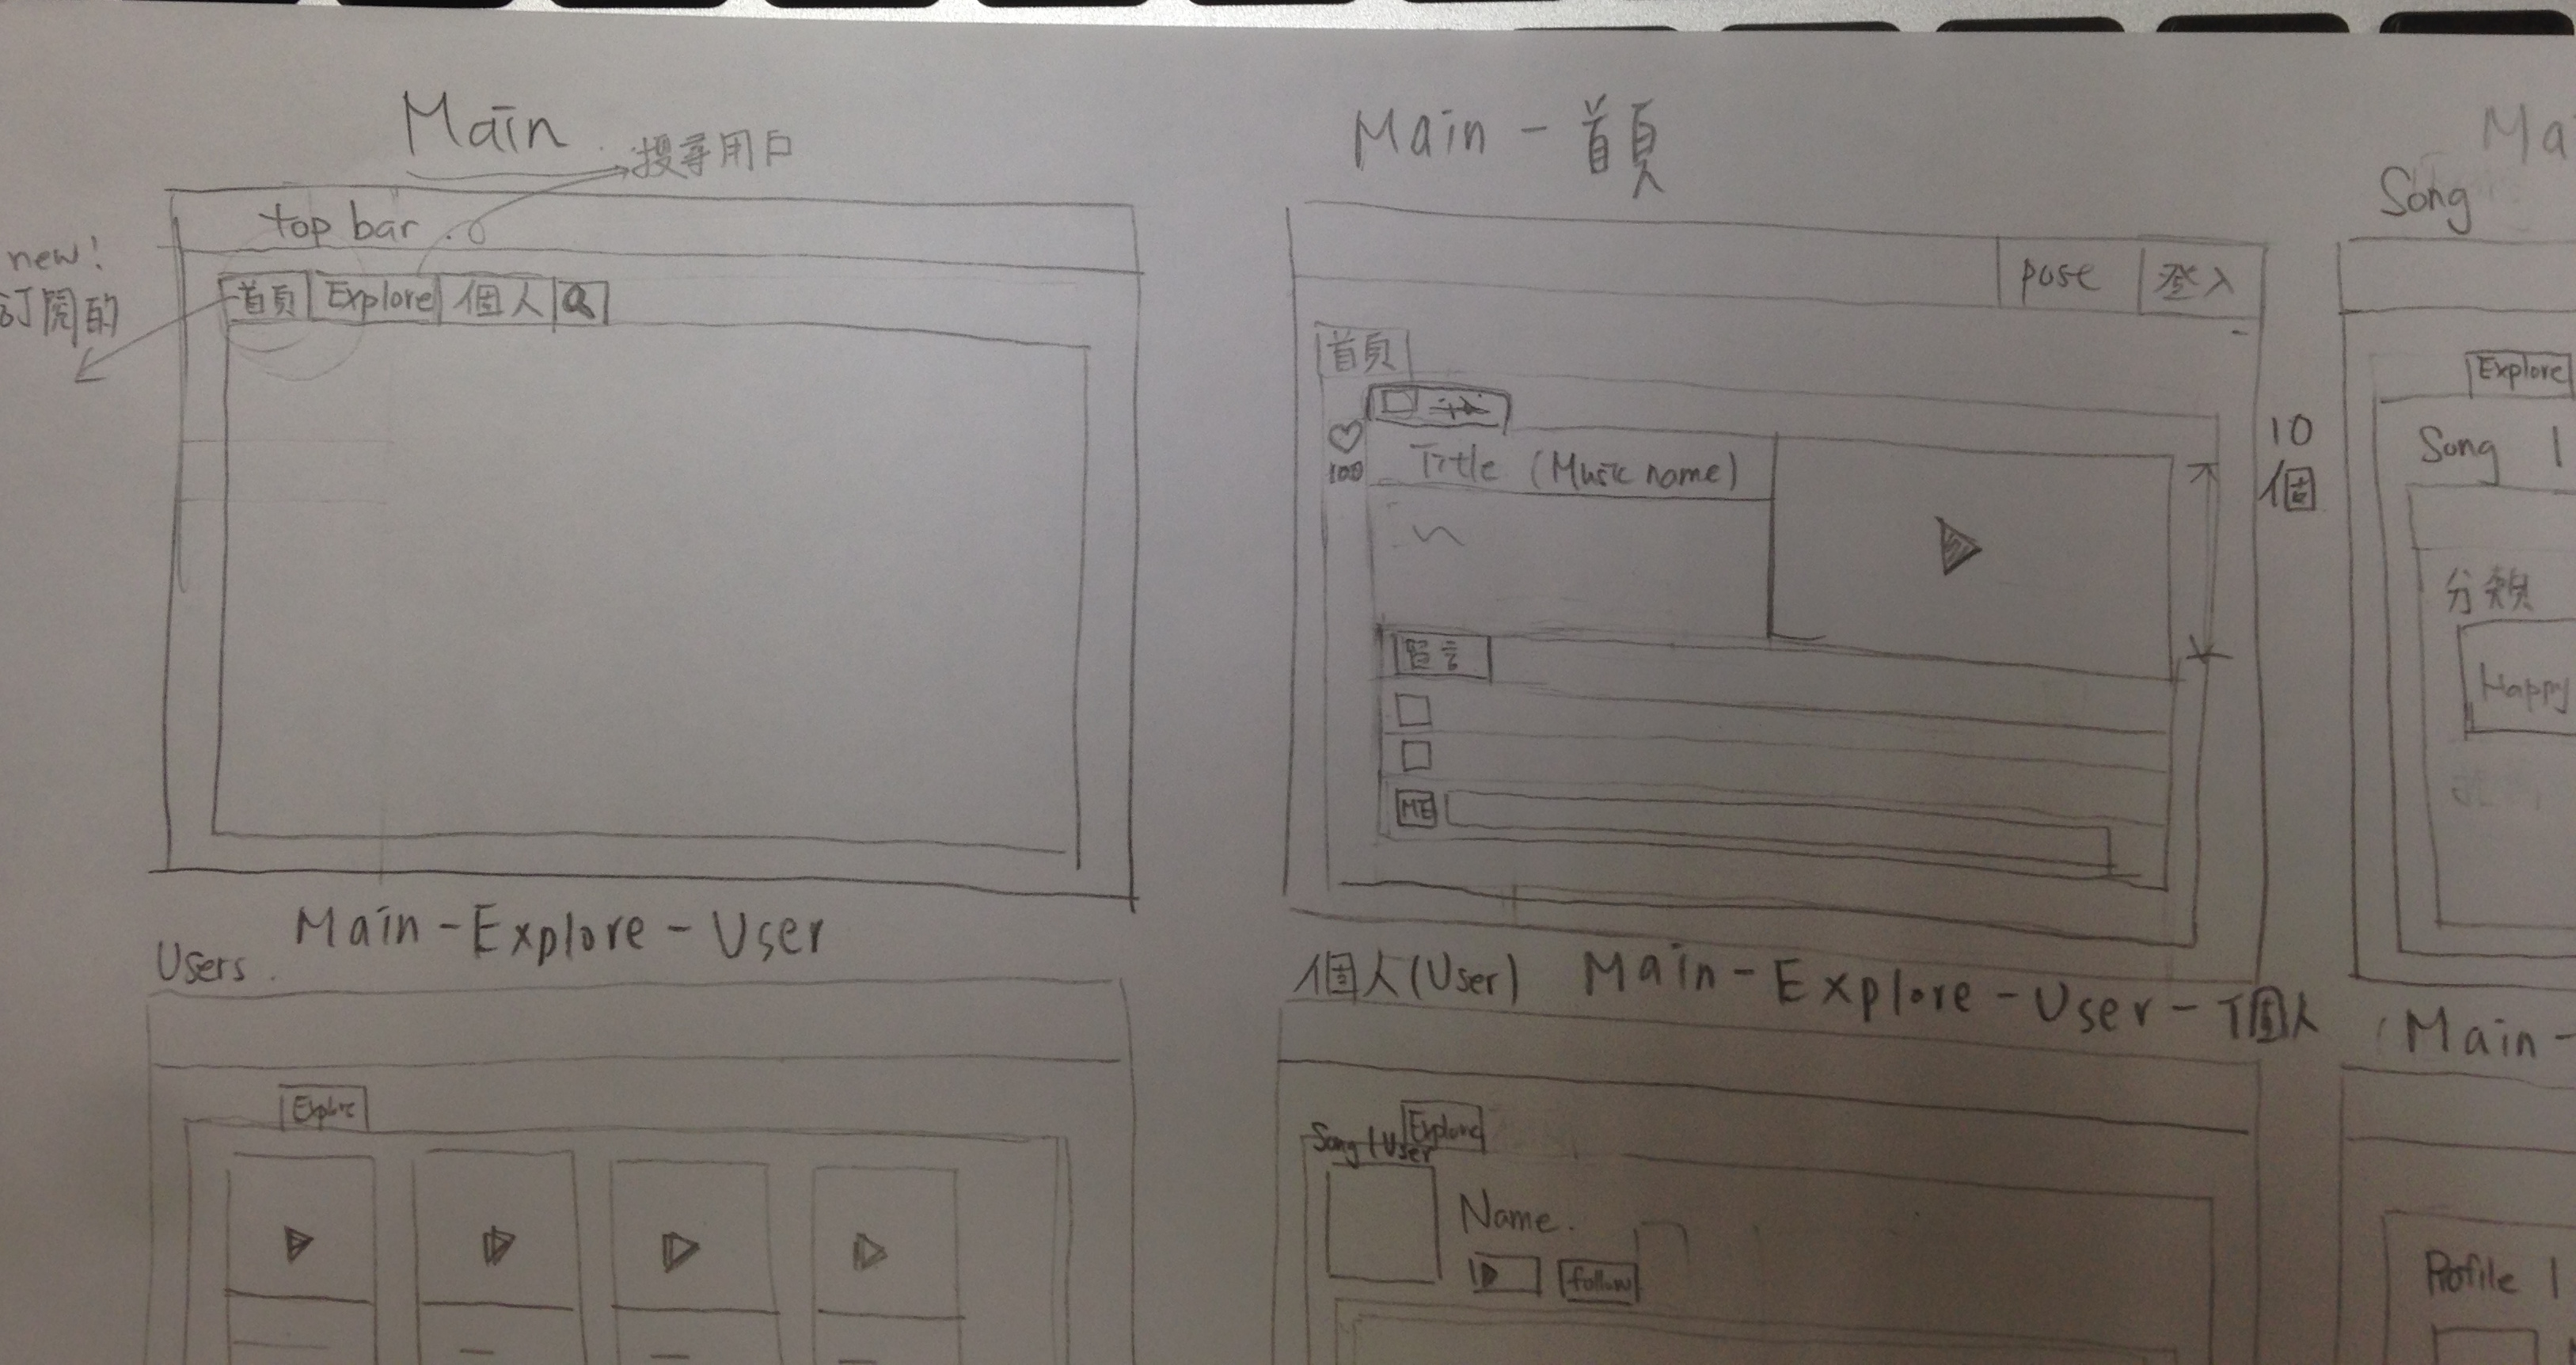 Main
搜尋用戶
top bar
new!
訂閱的
首頁 Explore 個人
Main - 首頁
pose 登入
首頁
100
Title (Music name)
10
個
留言
ME
Ma
Song
Explore
Song |
分類
Happy
Main - Explore - User
Users.
Explore
個人 (User) Main - Explore - User - 個人
Explore
Song / User
Name.
follow
Main -
Profile |